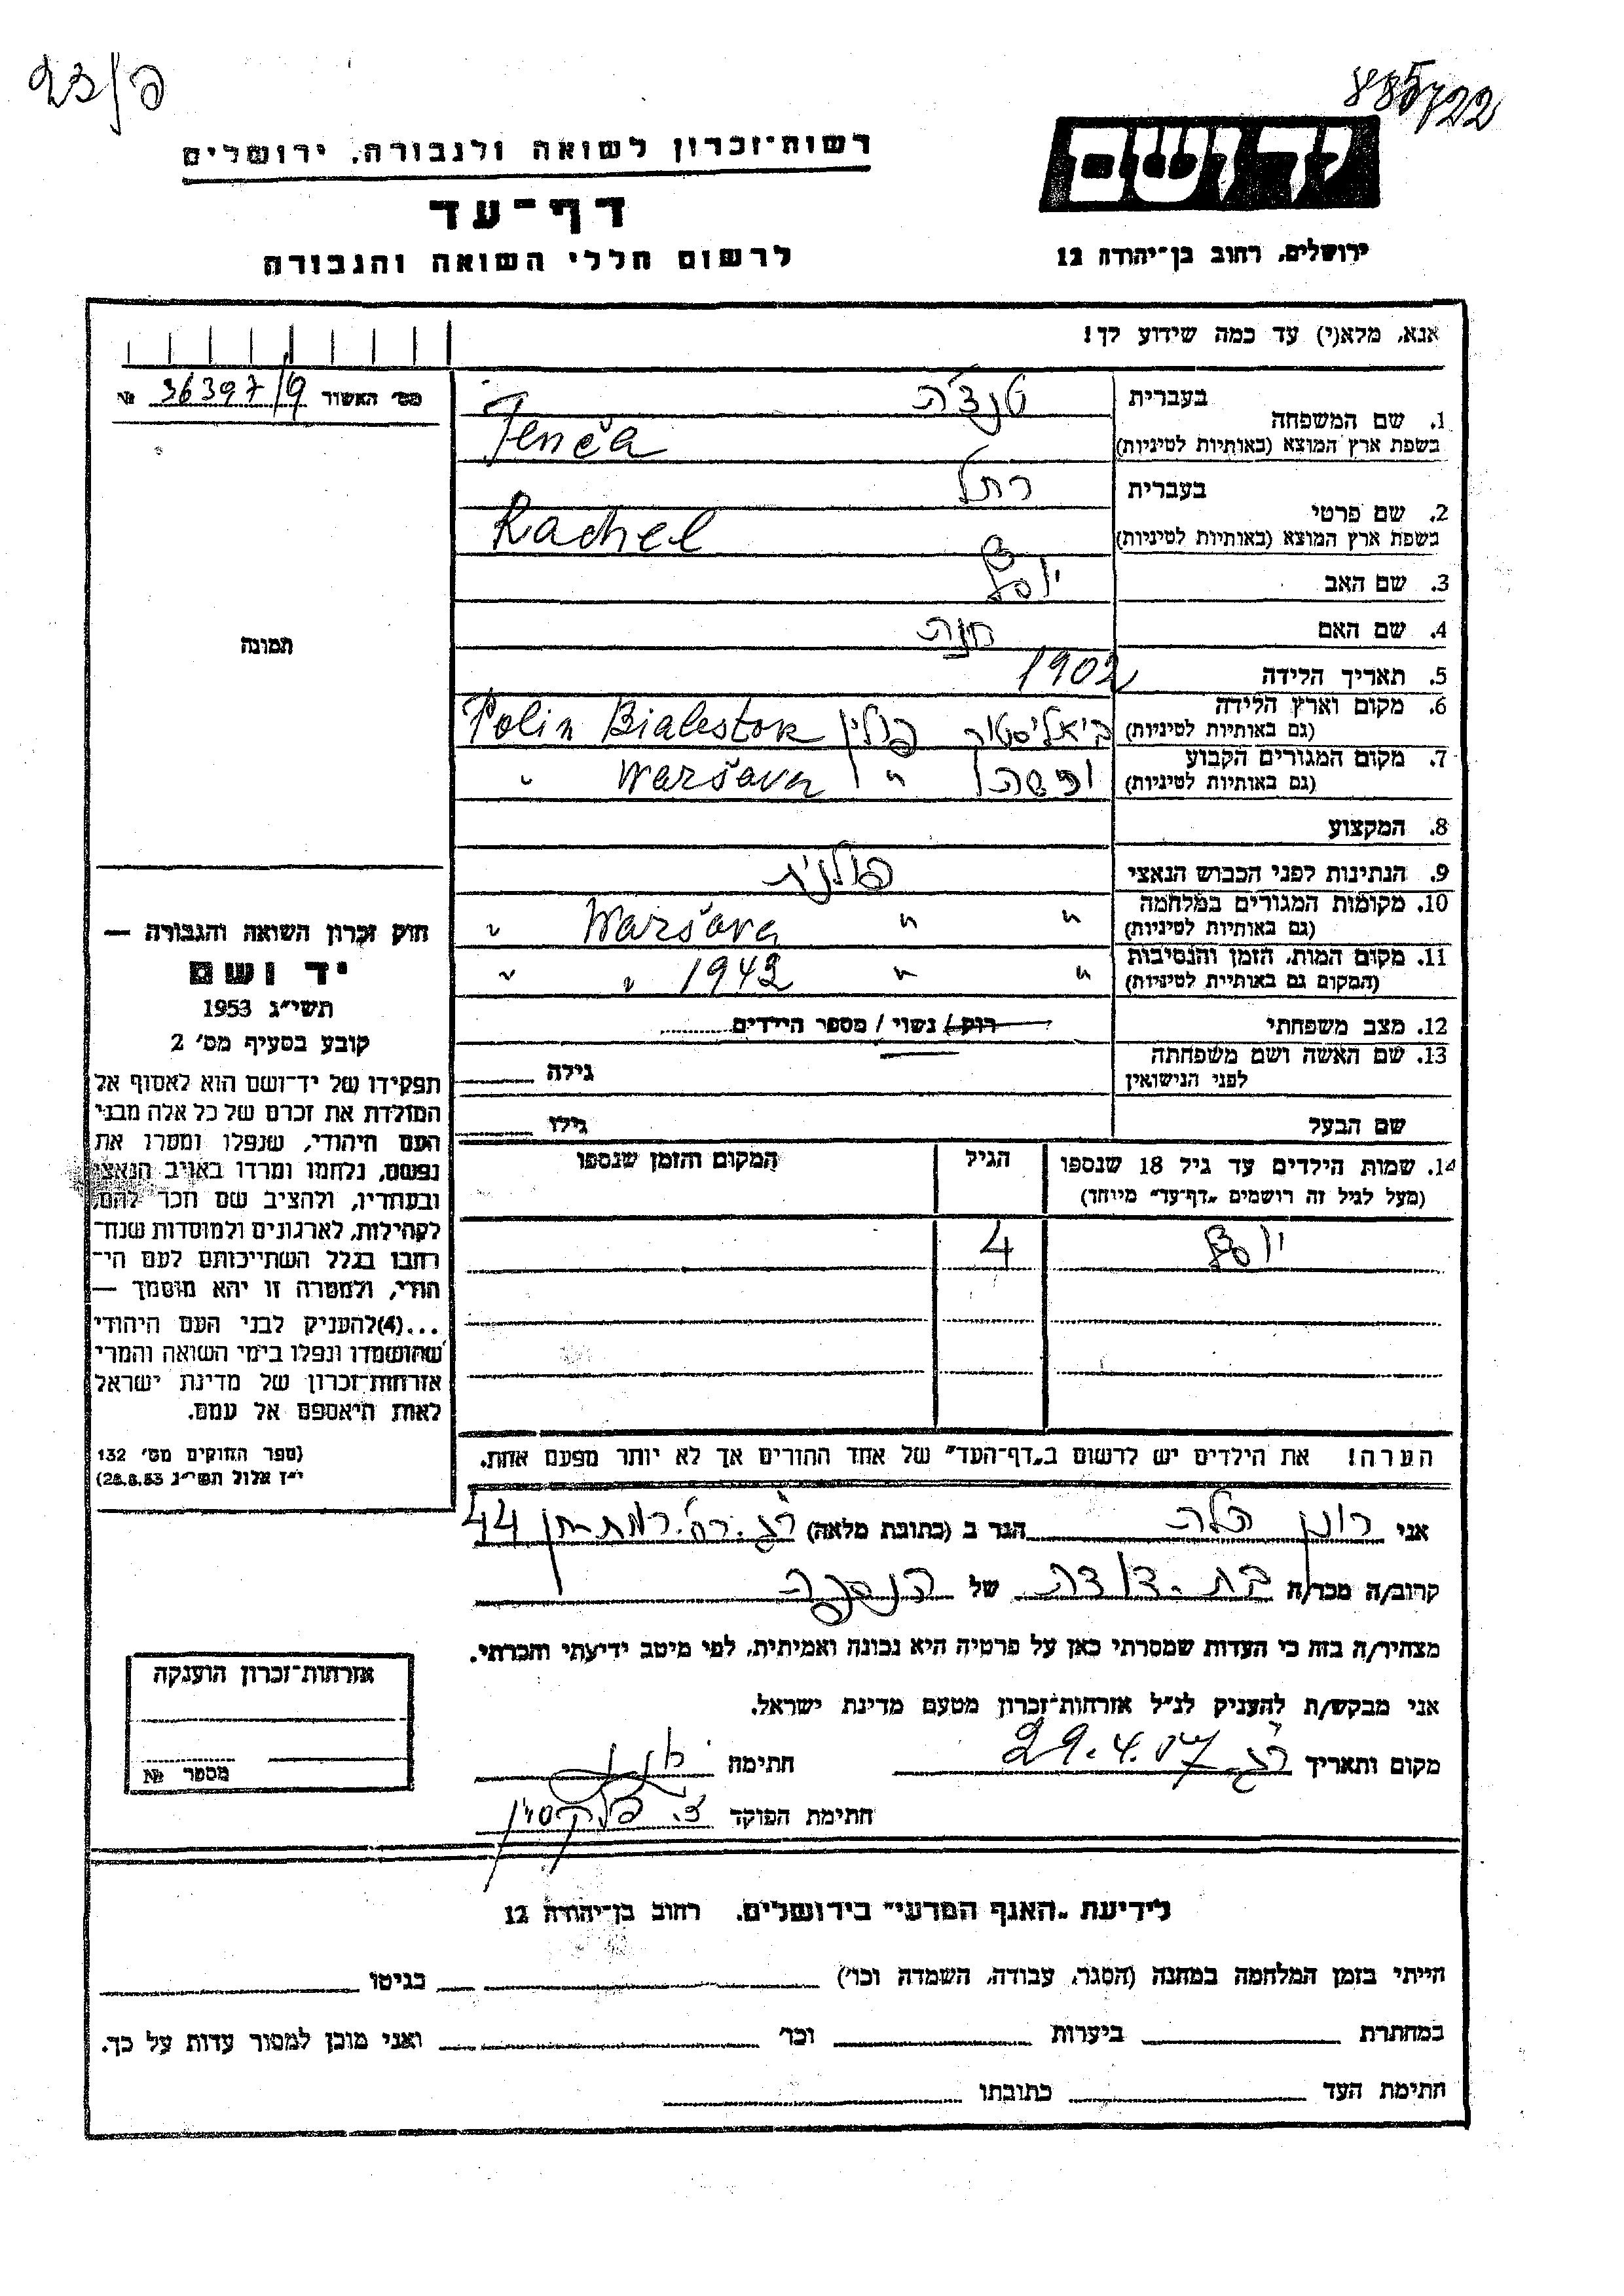 23/פ
885722
רשות־זכרון לשואה ולגבורה, ירושלים
דף־עד
לרשום חללי השואה והגבורה
יד ושם
ירושלים, רחוב בן־יהודה 12
אנא, מלא(י) עד כמה שידוע לך!
מס׳ האשור 36397/9 №
תמונה
1. שם המשפחה
בעברית טנצ׳ה
בשפת ארץ המוצא (באותיות לטיניות) Tenča
2. שם פרטי
בעברית רחל
בשפת ארץ המוצא (באותיות לטיניות) Rachel
3. שם האב יוסף
4. שם האם חנה
5. תאריך הלידה 1902
6. מקום וארץ הלידה
(גם באותיות לטיניות) ביאליסטוק פולין Polin Bialestok
7. מקום המגורים הקבוע
(גם באותיות לטיניות) " Waršava "
8. המקצוע
9. הנתינות לפני הכבוש הנאצי פולנית
10. מקומות המגורים במלחמה
(גם באותיות לטיניות) " " Waršava "
11. מקום המות, הזמן והנסיבות
(המקום גם באותיות לטיניות) " " 1942 " "
12. מצב משפחתי רוק / נשוי / מספר הילדים
13. שם האשה ושם משפחתה
לפני הנישואין גילה
שם הבעל גילו
14. שמות הילדים עד גיל 18 שנספו
(מעל לגיל זה רושמים „דף־עד״ מיוחד)
הגיל
המקום והזמן שנספו
יוסף 4
חוק זכרון השואה והגבורה —
יד ושם
תשי״ג 1953
קובע בסעיף מס׳ 2
תפקידו של יד־ושם הוא לאסוף אל
המולדת את זכרם של כל אלה מבני
העם היהודי, שנפלו ומסרו את
נפשם, נלחמו ומרדו באויב הנאצי
ובעוזריו, ולהציב שם וזכר להם,
לקהילות, לארגונים ולמוסדות שנח־
רבו בגלל השתייכותם לעם הי־
הודי, ולמטרה זו יהא מוסמך —
...(4)להעניק לבני העם היהודי
שהושמדו ונפלו בימי השואה והמרי
אזרחות־זכרון של מדינת ישראל
לאות היאספם אל עמם.
(ספר החוקים מס׳ 132
י״ז אלול תשי״ג 28.8.53)
הערה! את הילדים יש לרשום ב„דף־העד״ של אחד ההורים אך לא יותר מפעם אחת.
אני רונן הלה הגר ב (כתובת מלאה) 44
קרוב/ה מכר/ה בת־דודה של הנספה
מצהיר/ה בזה כי העדות שמסרתי כאן על פרטיה היא נכונה ואמיתית, לפי מיטב ידיעתי והכרתי.
אני מבקש/ת להעניק לנ״ל אזרחות־זכרון מטעם מדינת ישראל.
מקום ותאריך 29.4.57 חתימה
חתימת הפוקד
אזרחות־זכרון הוענקה
מספר №
לידיעת „האגף המדעי״ בירושלים, רחוב בן־יהודה 12
הייתי בזמן המלחמה במחנה (הסגר, עבודה, השמדה וכו׳) בגיטו
במחתרת ביערות וכו׳ ואני מוכן למסור עדות על כך.
חתימת העד כתובתו